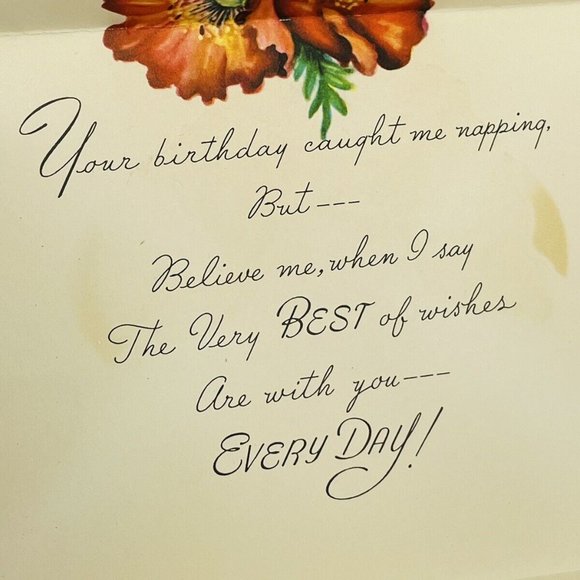 Your birthday caught me napping,
But---
Believe me, when I say
The Very BEST of wishes
Are with you---
EVERY DAY!